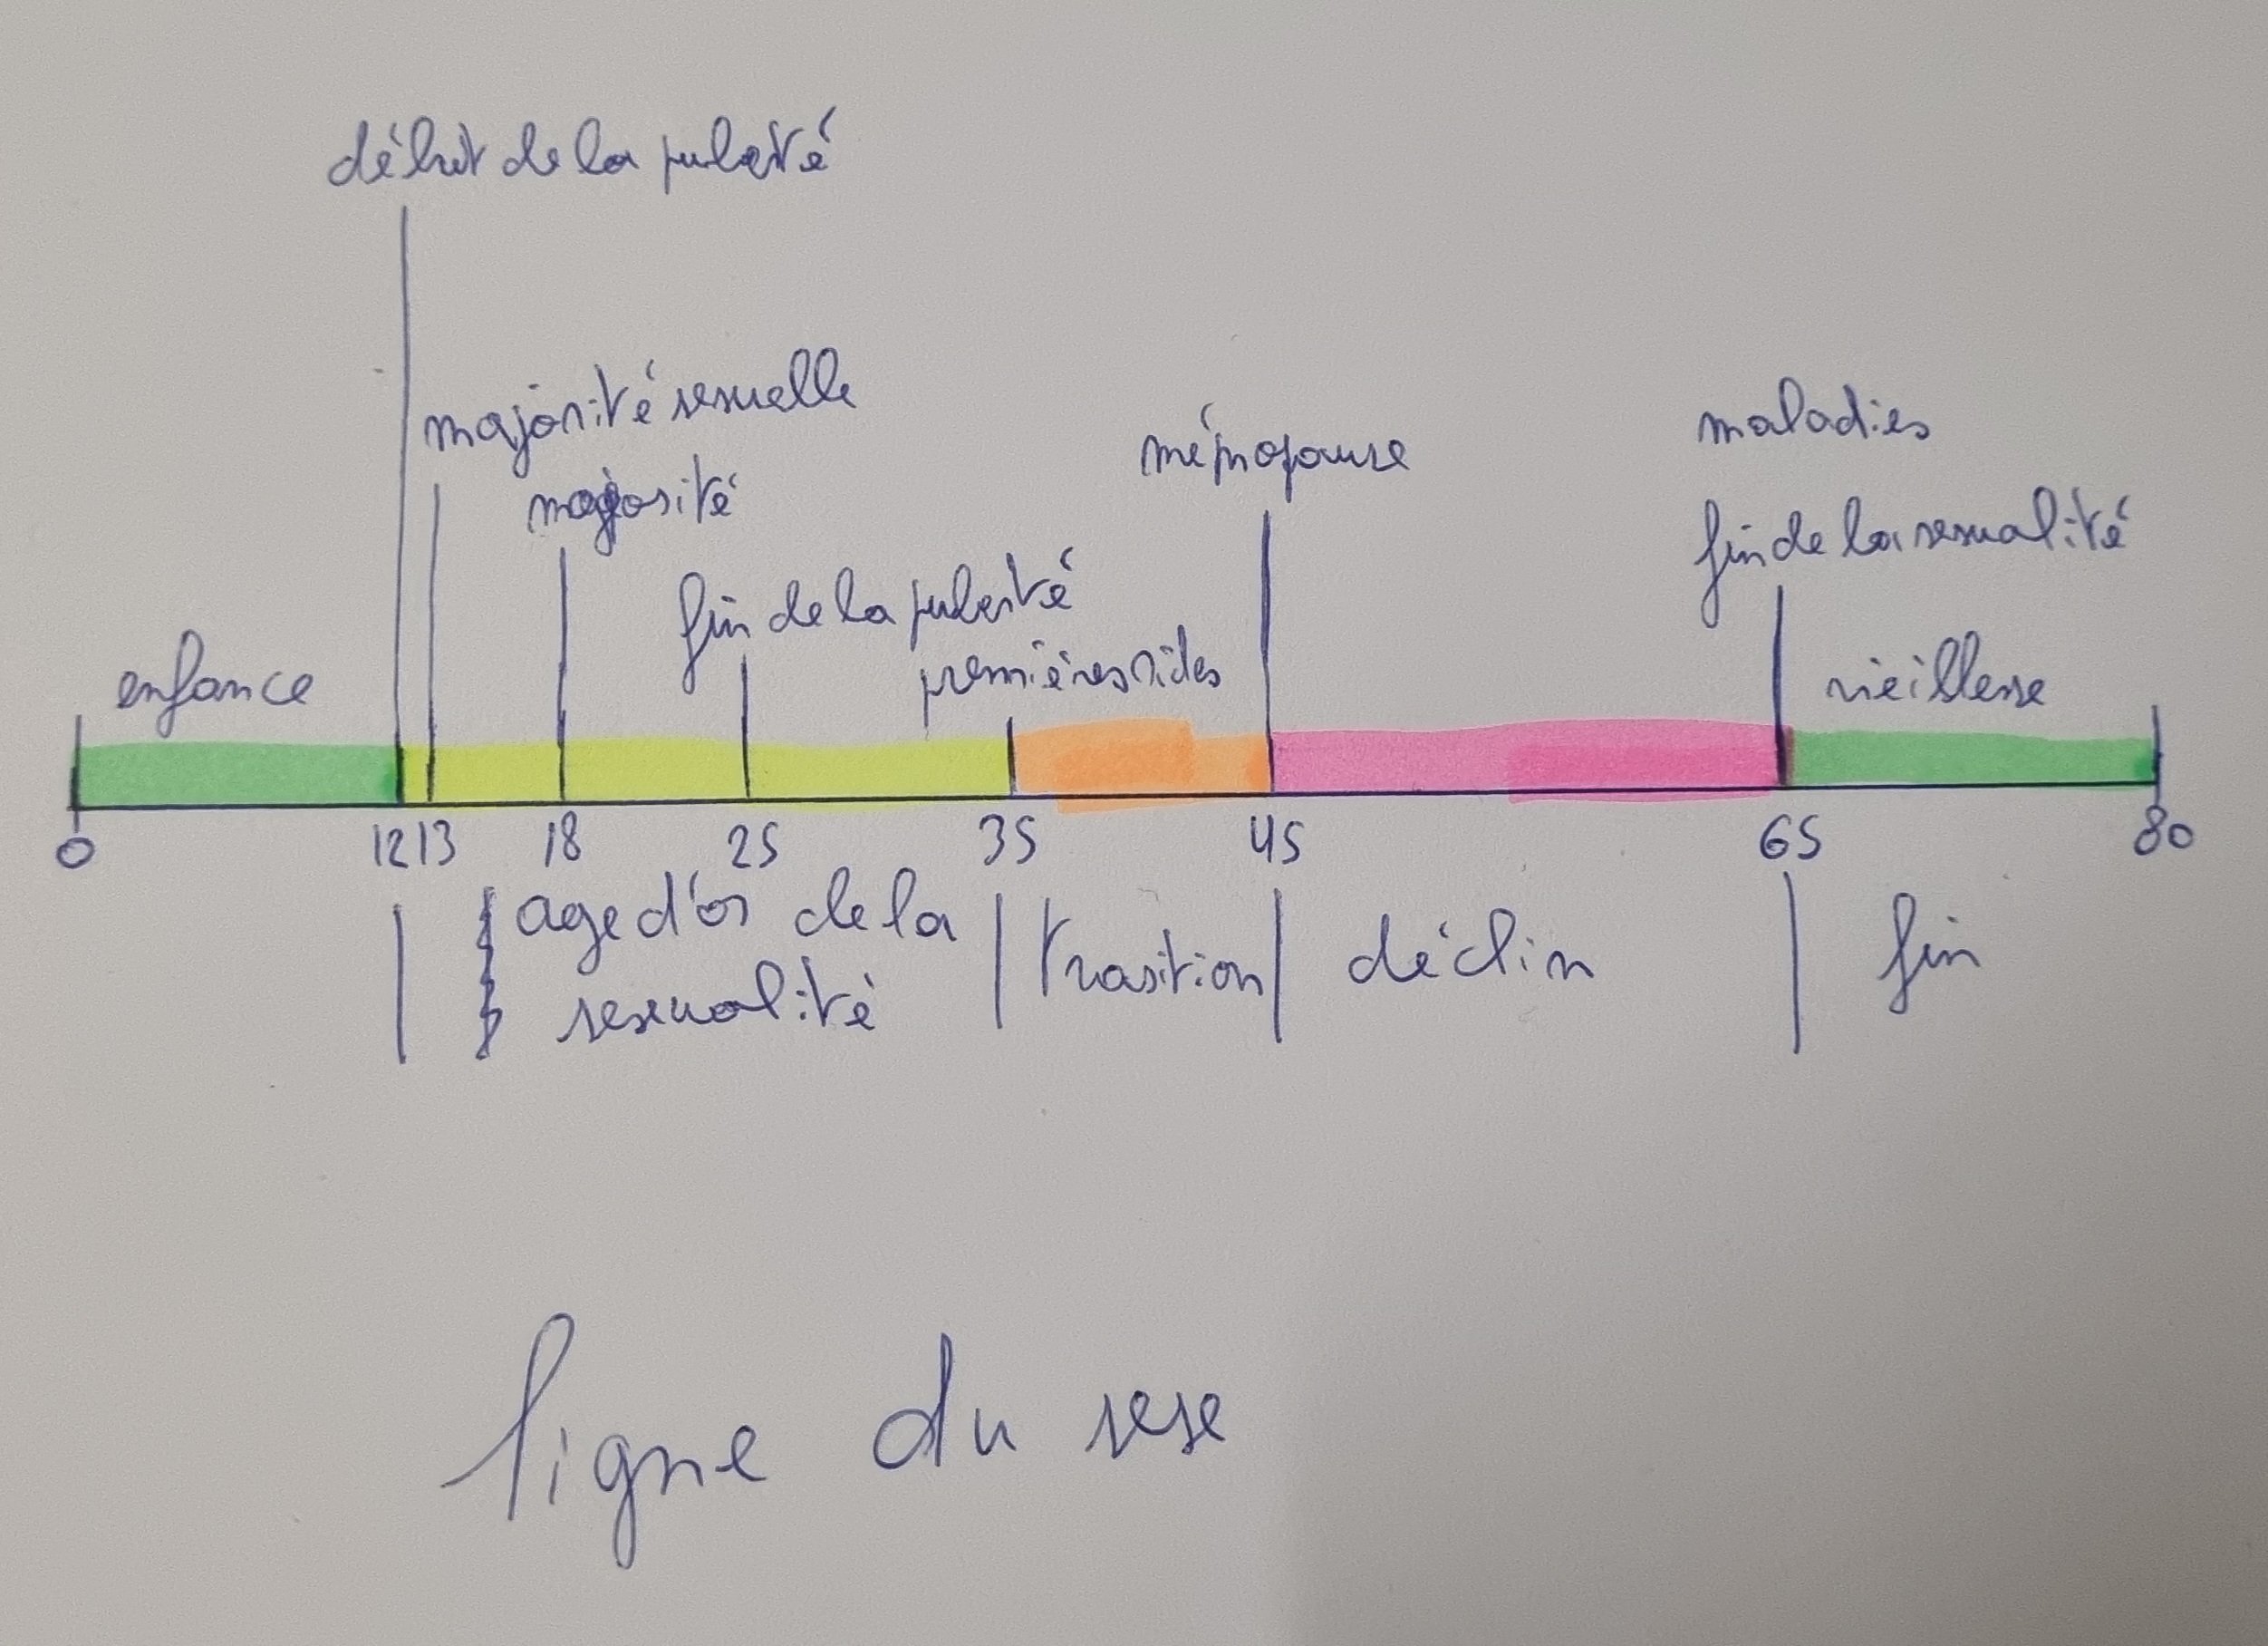 début de la puberté
majorité sexuelle
majorité
ménopause
maladies
fin de la sexualité
fin de la puberté
premières rides
enfance
vieillesse
0 12 13 18 25 35 45 65 80
age d'or de la
sexualité
trasition
déclin
fin
ligne du sexe